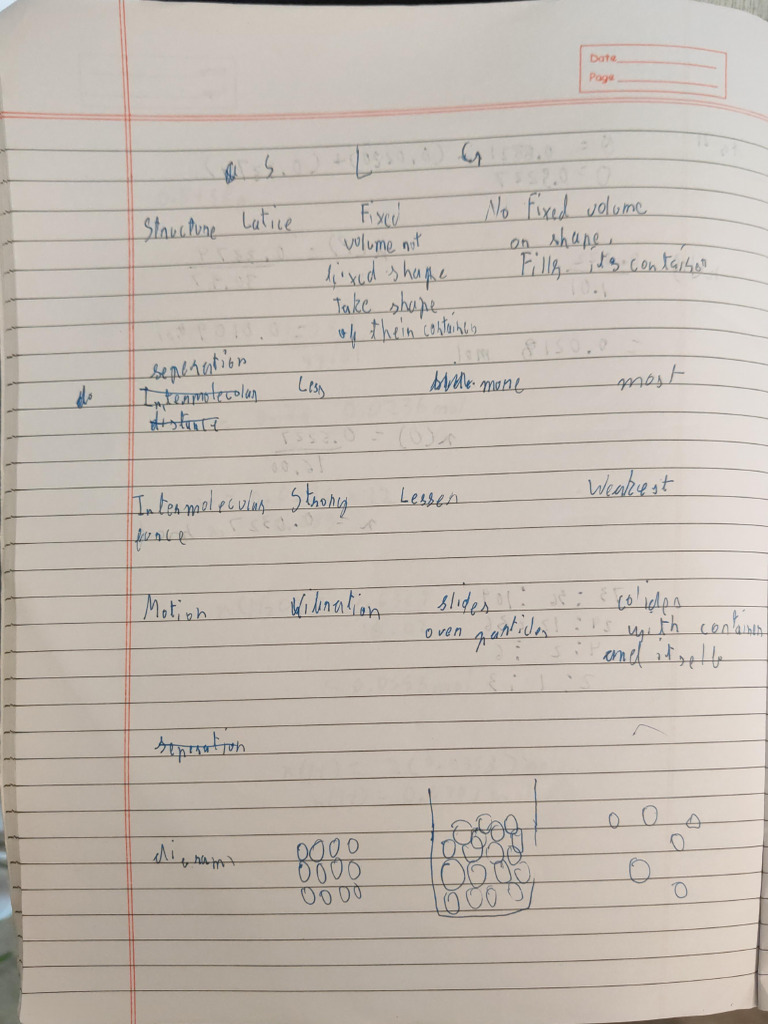 Date
Page
S L G
Structure Latice Fixed No Fixed volume
volume not on shape.
fixed shape Fills its container
Take shape
of their container
seperation
Intermolecular Less more most
distance
Intermolecular Strong Lesser Weakest
force
Motion Vibration slides colides
over particles with container
and itself
seperation
diagram